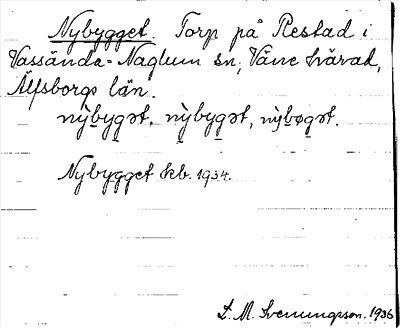 Nybygget. Torp på Restad i
Vassända-Naglum sn, Väne härad,
Älfsborgs län.
nỳbygət, nỳbygət, nỳbøgət.
Nybygget kb. 1934.
D. M. Svenungsson. 1936